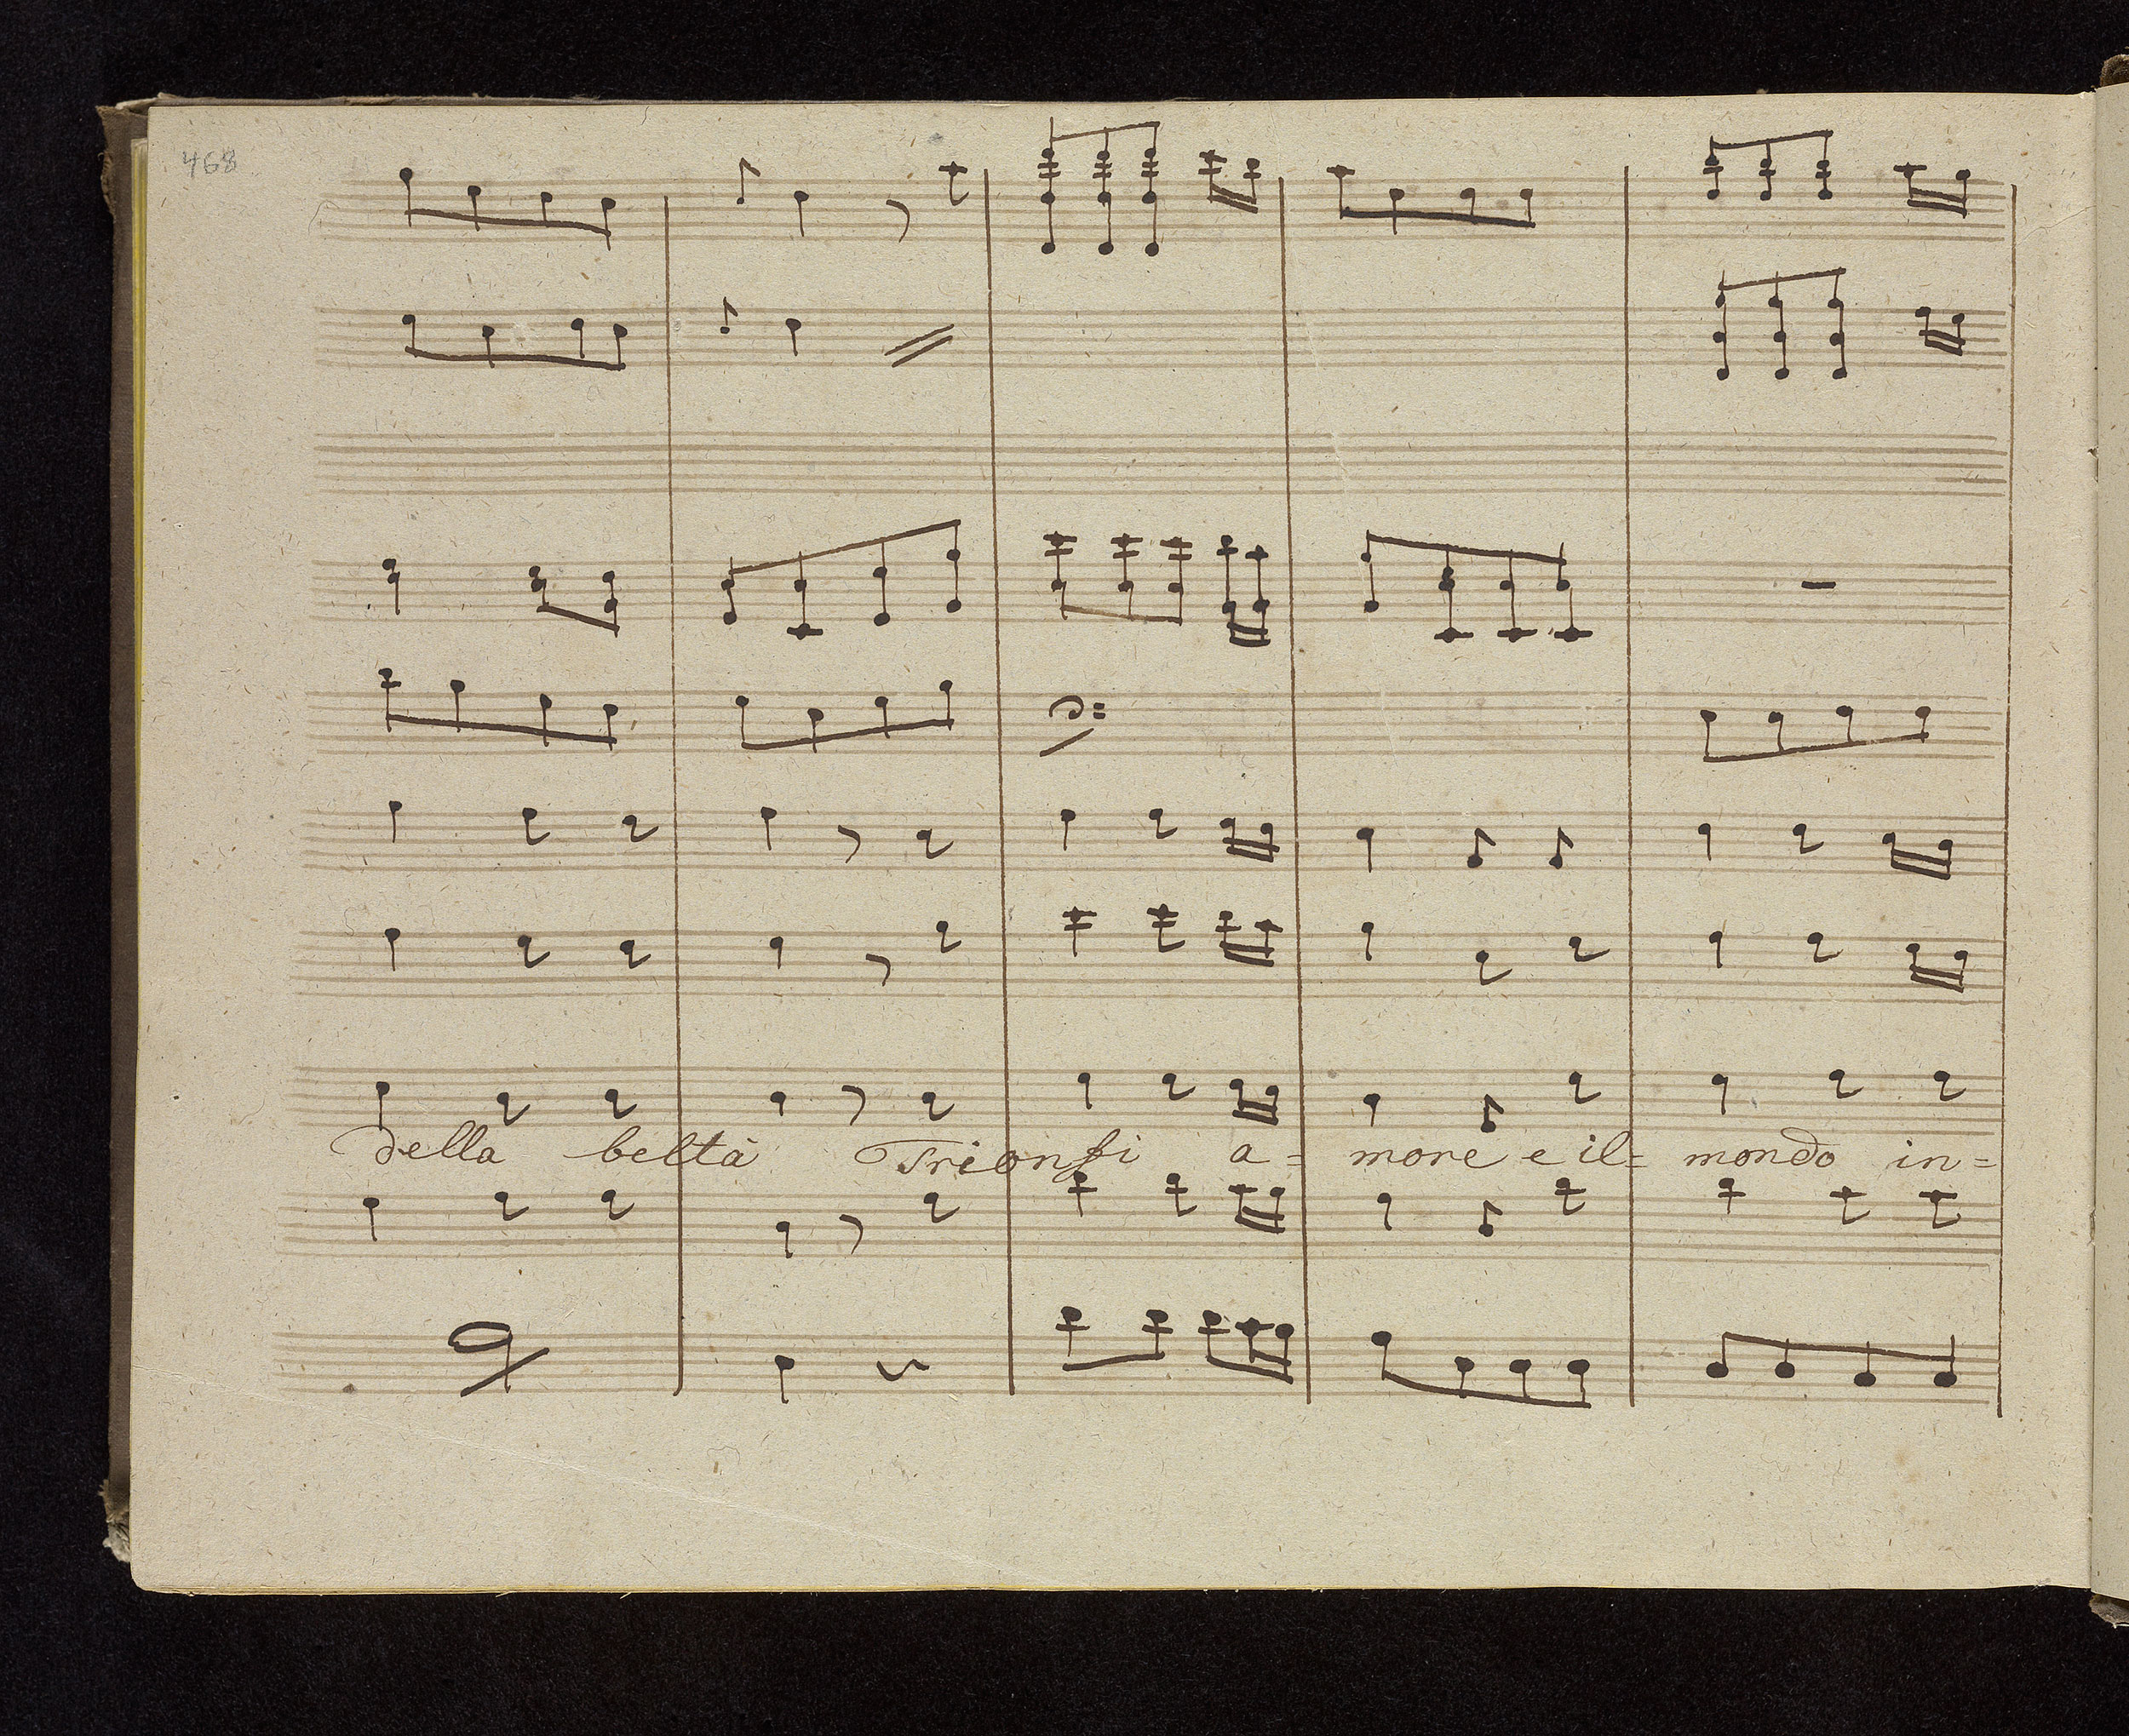 468
della beltà Trionfi a= more e il= mondo in=